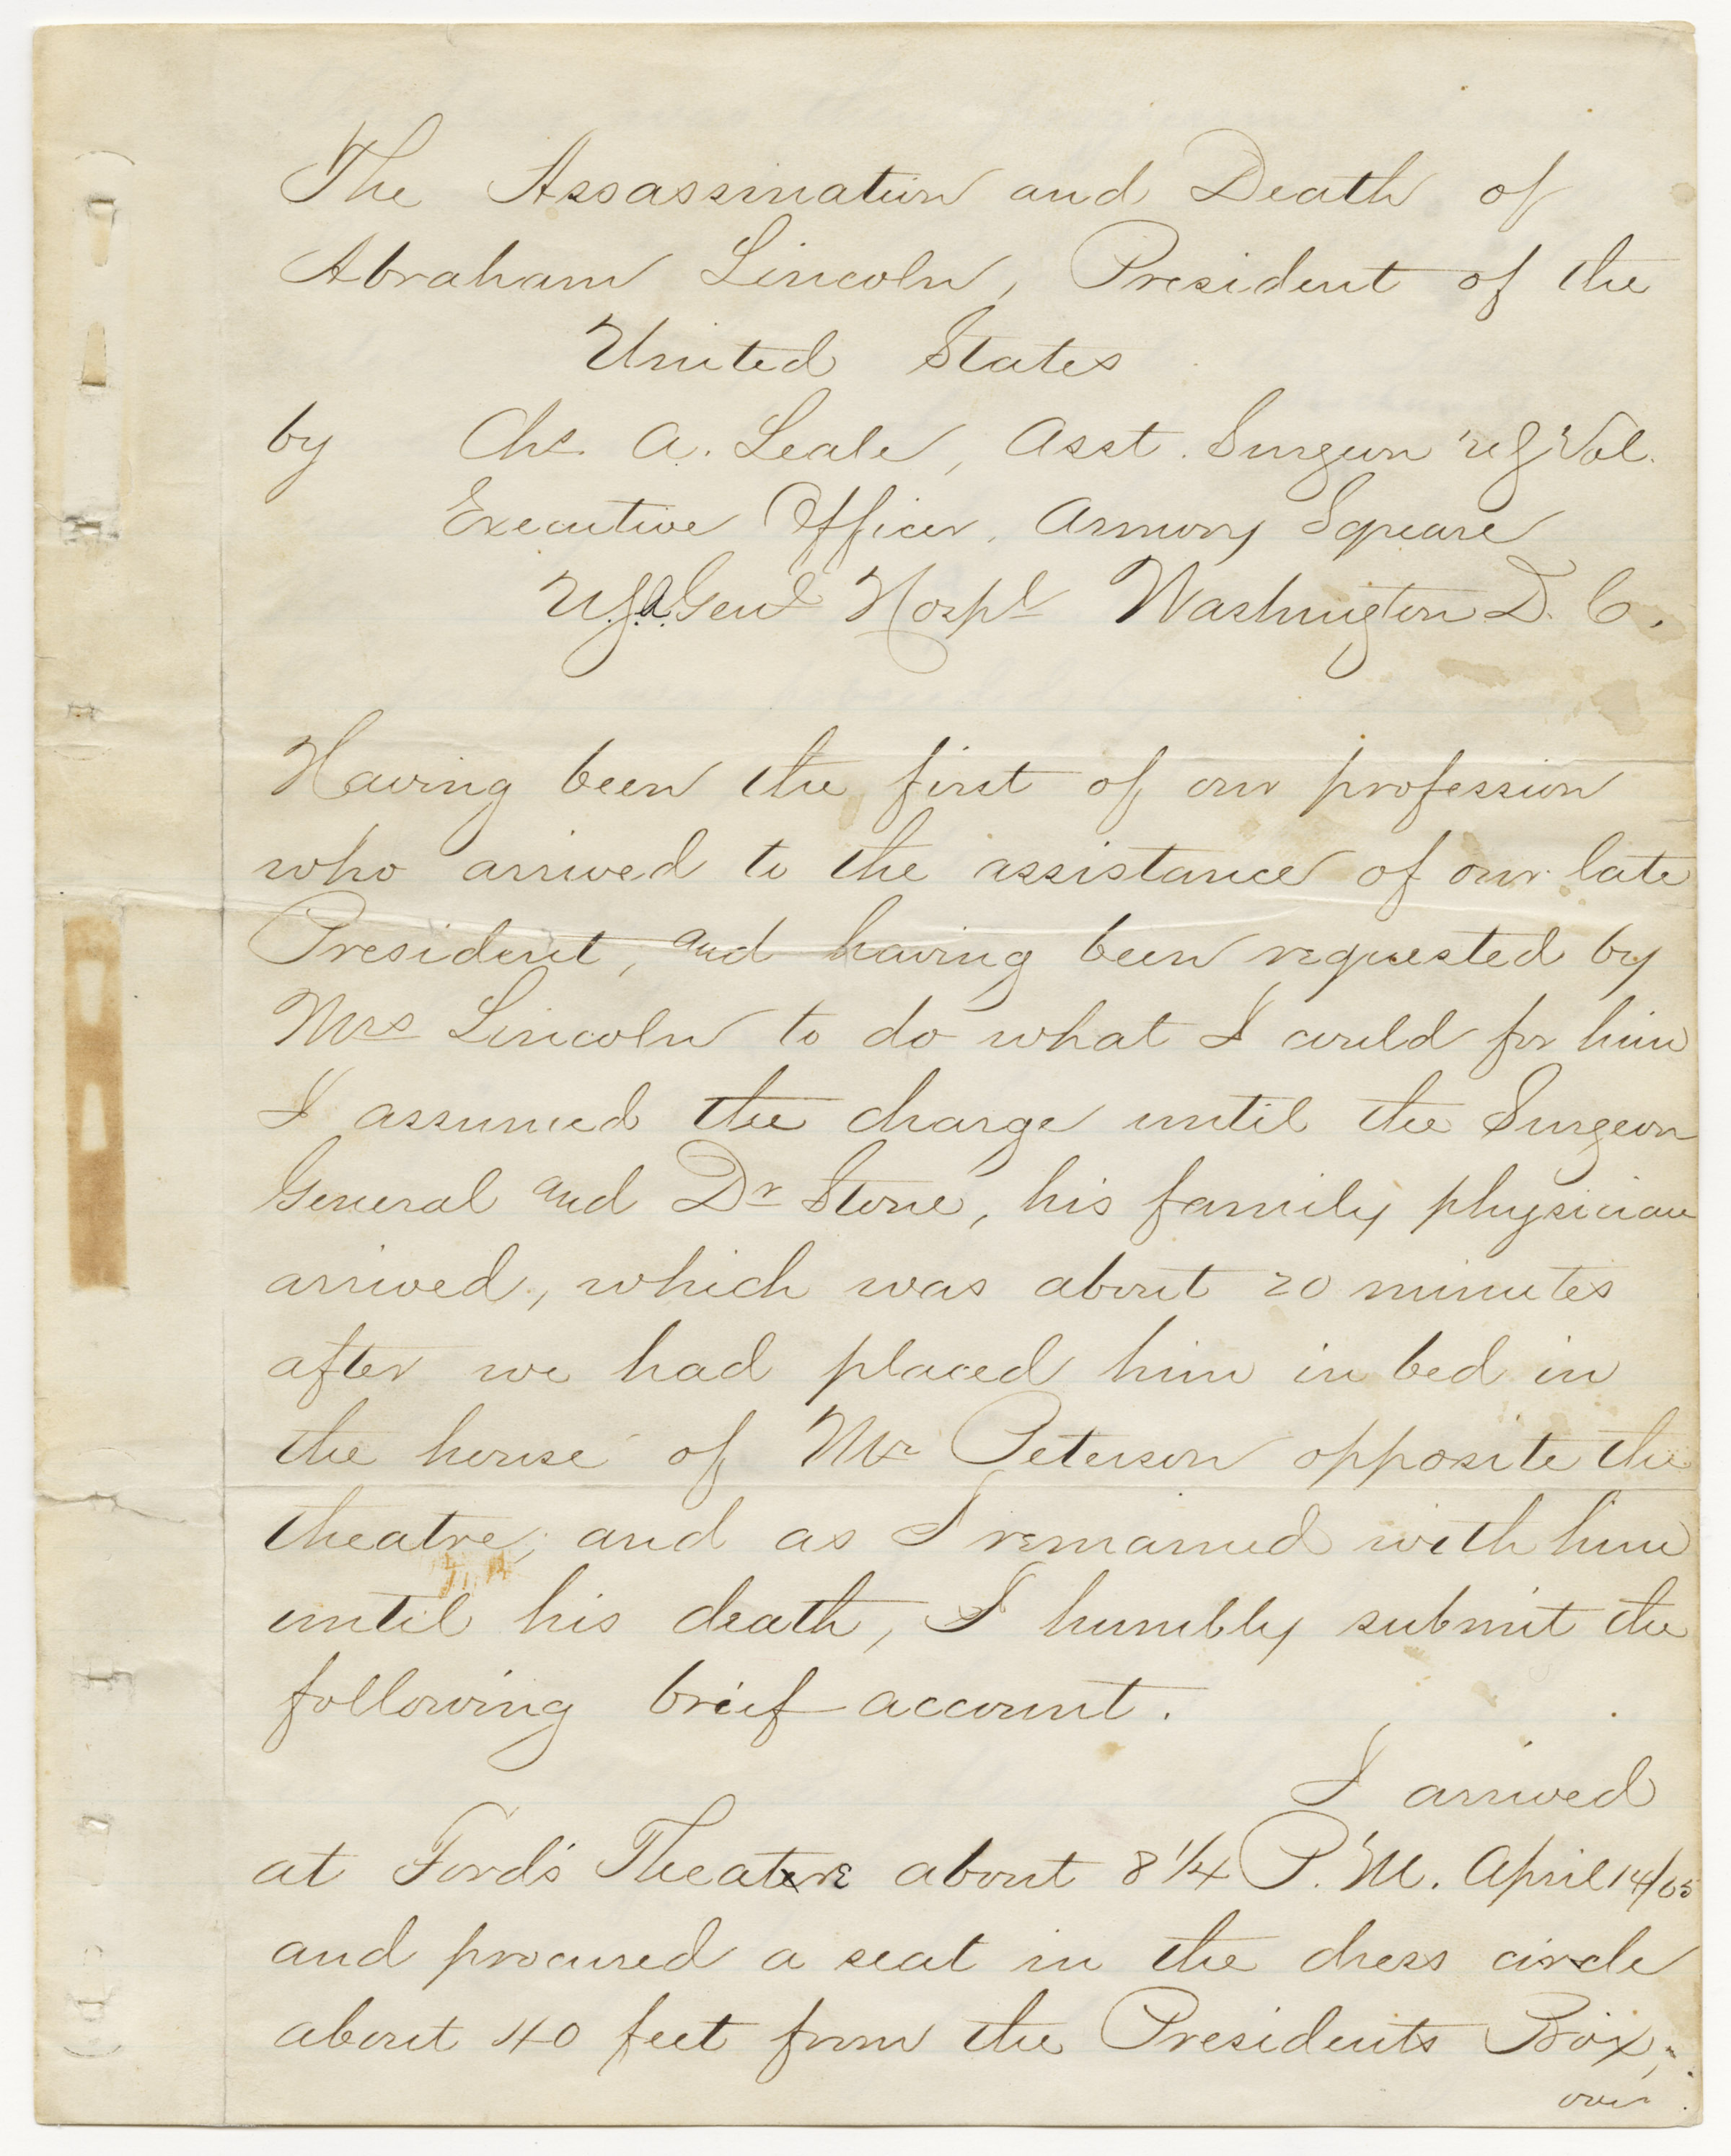 The Assassination and Death of
Abraham Lincoln, President of the
United States
by Chs. A. Leale, Asst. Surgeon U.S. Vol.
Executive Officer, Armory Square
U.S.A. Genl Hospl Washington D. C.
Having been the first of our profession
who arrived to the assistance of our late
President, and having been requested by
Mrs Lincoln to do what I could for him
I assumed the charge until the Surgeon
General and Dr Stone, his family physician
arrived, which was about 20 minutes
after we had placed him in bed in
the house of Mr Peterson opposite the
theatre; and as I remained with him
until his death, I humbly submit the
following brief account.
I arrived
at Ford's Theatre about 8 1/4 P. M. April 14/65
and procured a seat in the dress circle
about 40 feet from the Presidents Box;
over